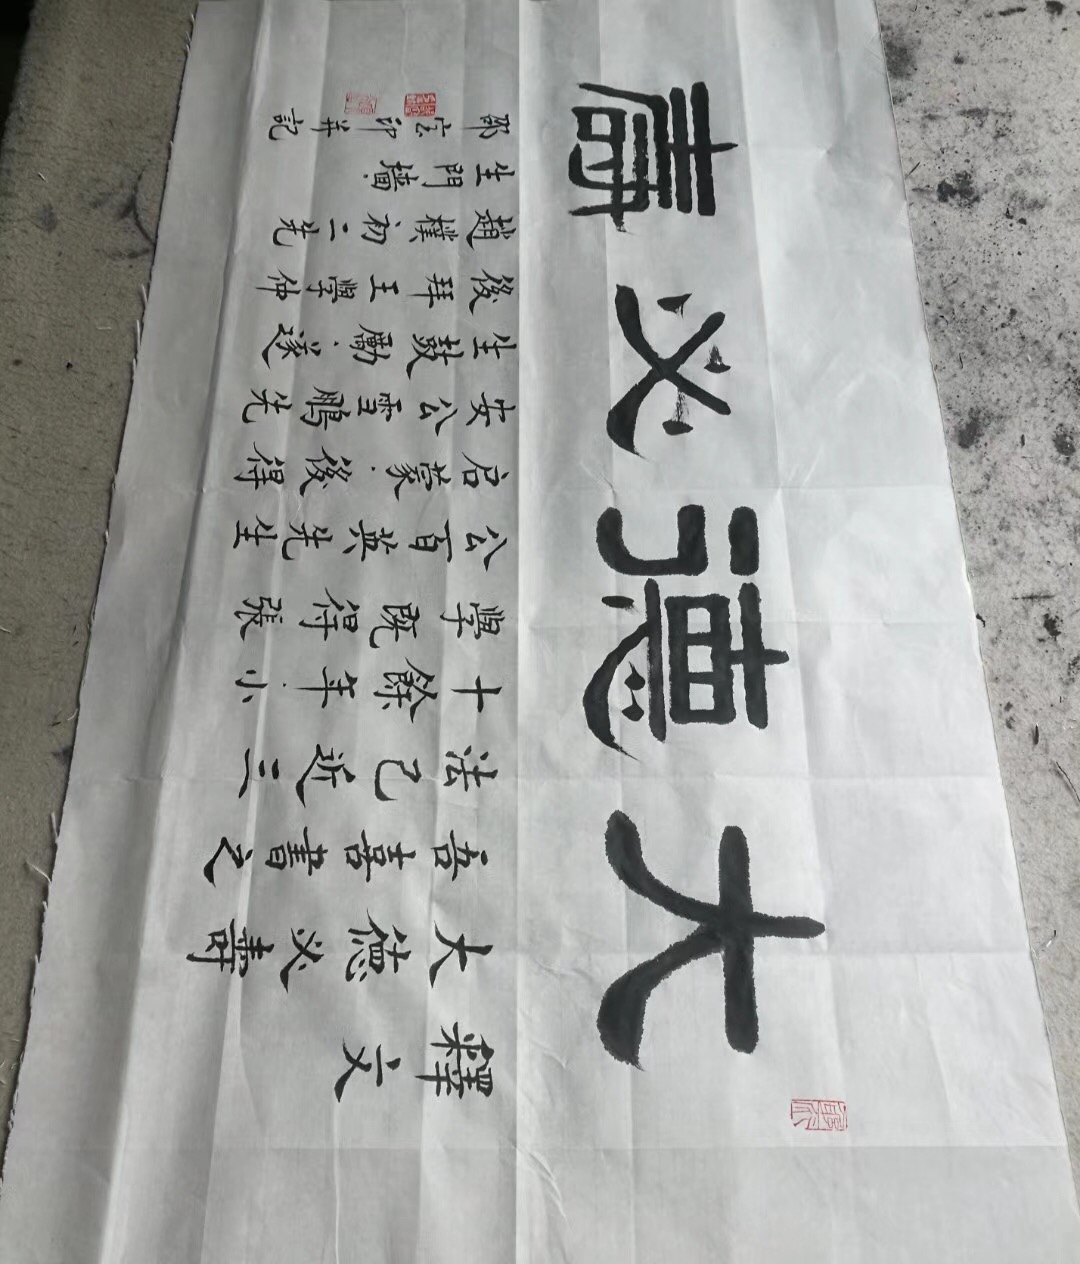 大德必壽
釋文
大德必壽
吾喜書之
法已近三
十餘年·小
學既得張
公百英先生
启蒙·後得
安公雪鵬先
生鼓勵·遂
後拜王學仲
趙樸初二先
生門墻·
邵宝印并記